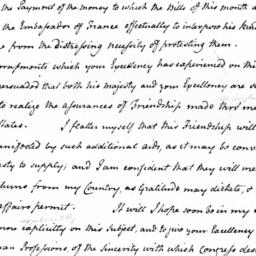 the Payment of the money to which the Bills of this month a
the Embassador of France effectually to interpose his kind
me from the distressing necessity of protesting them.
arrassments which your Excellency has experienced on this
persuaded that both his majesty and your Excellency are se
to realize the assurances of Friendship made thro' me
States. I flatter myself that this Friendship will
manifested by such additional aids, as it may be conve
esty to supply; and I am confident that they will me
eturns from my Country, as Gratitude may dictate, &
affairs permit. It will I hope soon be in my
more explicitly on this Subject, and to give your Excellency
than Professions, of the Sincerity with which Congress des